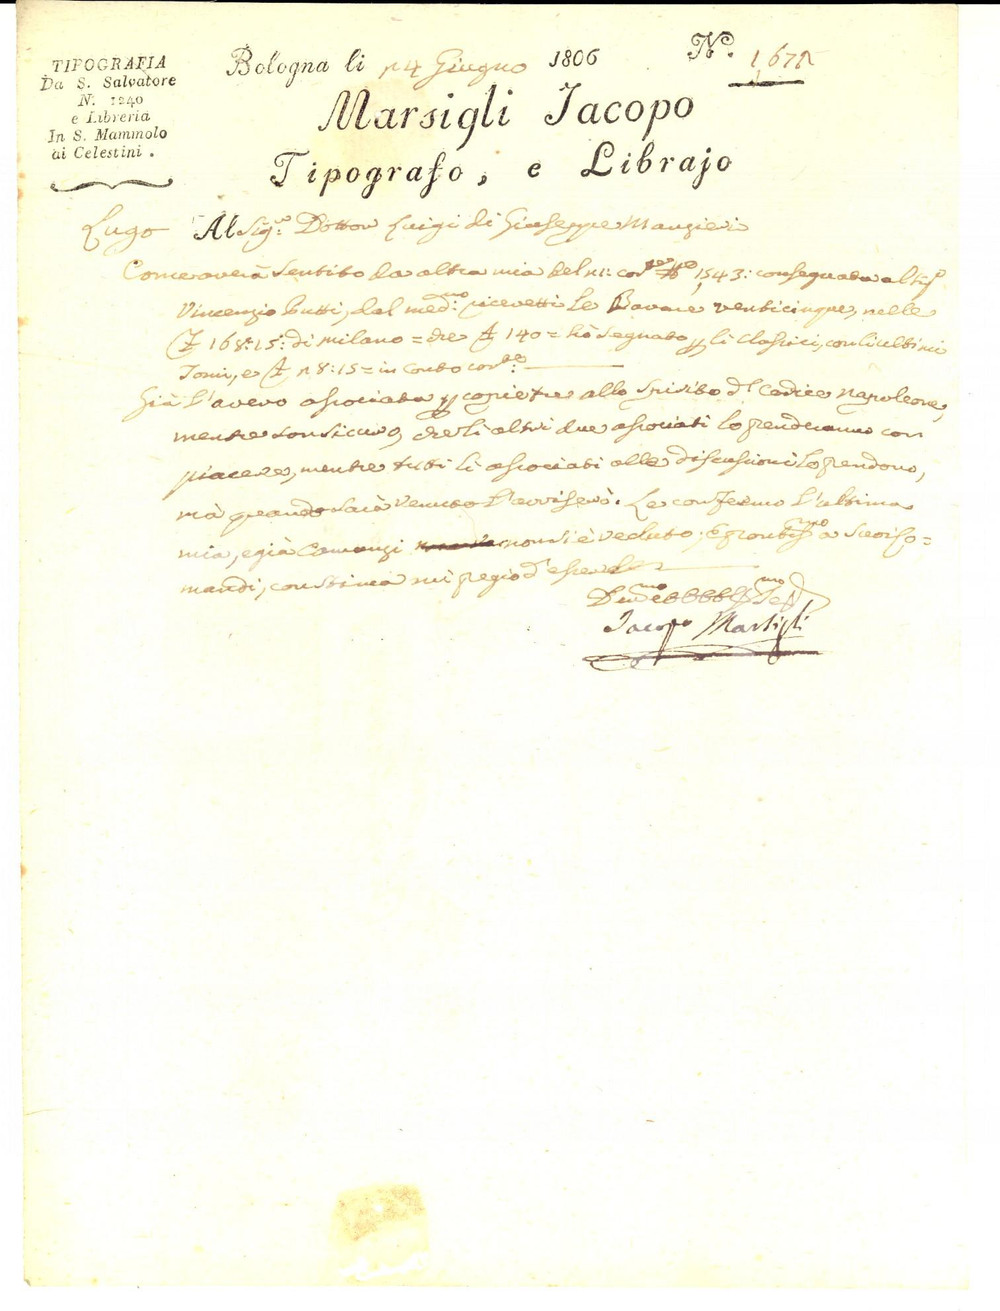 TIPOGRAFIA
Da S. Salvatore
N. 1240
e Libreria
In S. Mammolo
ai Celestini.
Bologna li 14 Giugno 1806 N.º 1671
Marsigli Jacopo
Tipografo, e Librajo
Lugo Al Sig.r Dottor Luigi di Giuseppe Manzieri
Come averà sentito da altra mia del cor.te 1543: consegnata al Sig.r
Vincenzio Gutti, dal med.mo ricevetti le Bavare venticinque, nelle
168:15: di Milano = che 140 = hò segnato p li Classici, con li ultimi
Tomi, e 28:15 = in conto cor.te
Già l'avevo associata p copie tre allo Spirito d.l Codice Napoleone,
mentre son sicuro, che li altri due associati lo prenderanno con
piacere, mentre tutti li associati alle discussioni lo prendono,
mà quando sarà venuto l'avviserò. Le confermo l'ultima
mia, e già Camanzi non si è veduto; e prontis.mo a suoi co=
mandi, con stima mi pregio d'essere
Jacopo Marsigli